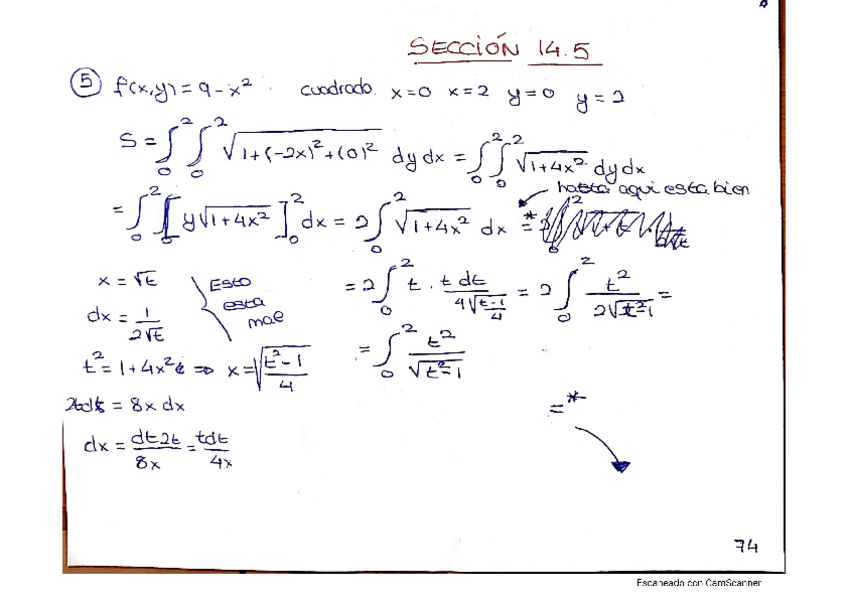 SECCIÓN 14.5
⑤ f(x,y) = 9 - x² cuadrado x=0 x=2 y=0 y=2
S = ∫₀² ∫₀² √(1+(-2x)²+(0)²) dy dx = ∫₀² ∫₀² √(1+4x²) dy dx
hasta aqui esta bien
= ∫₀² [y√(1+4x²)]₀² dx = 2 ∫₀² √(1+4x²) dx =*
x = √t
Esto
esta
mal
dx = 1/(2√t)
t² = 1+4x² => x = √((t²-1)/4)
2tdt = 8x dx
dx = dt2t/8x = tdt/4x
= 2 ∫₀² t · t dt/(4√((t-1)/4)) = 2 ∫₀² t²/(2√(t²-1)) =
= ∫₀² t²/√(t²-1)
=*
74
Escaneado con CamScanner